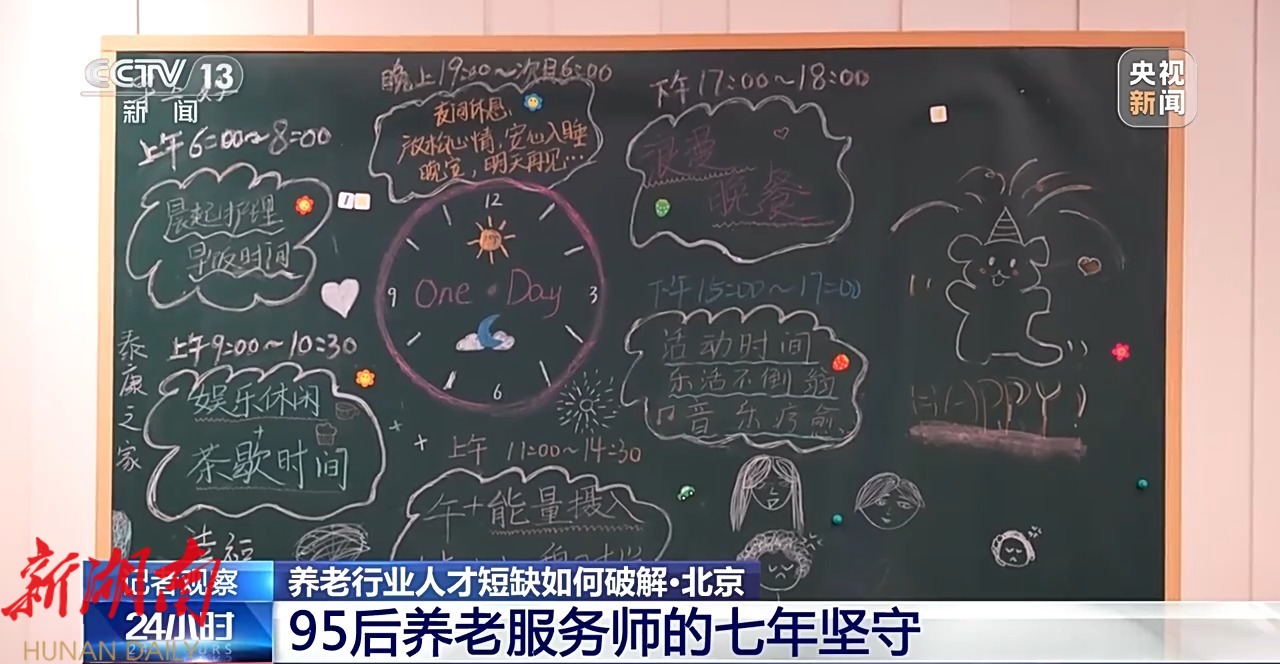 CCTV 13
新闻
央视
新闻
晚上19:00~次日6:00
夜间休息:
放松心情,安心入睡
晚安,明天再见…
下午17:00~18:00
浪漫
晚餐
上午6:00~8:00
晨起护理
早饭时间
12
3
6
9
One Day
下午15:00~17:00
活动时间
乐活不倒翁
音乐疗愈
泰康之家
上午9:00~10:30
娱乐休闲
+
茶歇时间
上午 11:00~14:30
午+能量摄入
HAPPY!
幸福
新湖南
HUNAN DAILY
记者观察
24小时
养老行业人才短缺如何破解·北京
95后养老服务师的七年坚守